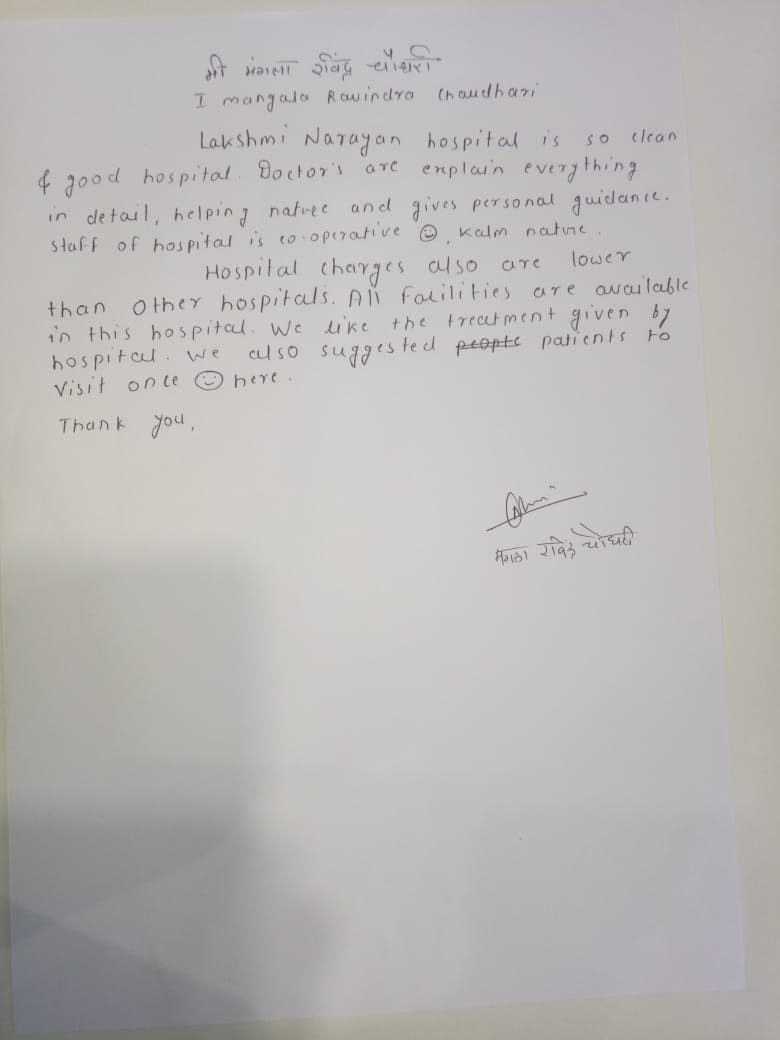 मी मंगला रविंद्र चौधरी
I mangala Ravindra Chaudhari
Lakshmi Narayan hospital is so clean
& good hospital. Doctor's are explain everything
in detail, helping nature and gives personal guidance.
Staff of hospital is co-operative ☺, kalm nature.
Hospital charges also are lower
than other hospitals. All facilities are available
in this hospital. We like the treatment given by
hospital. We also suggested people patients to
visit once ☺ here.
Thank you,
मंगला रविंद्र चौधरी